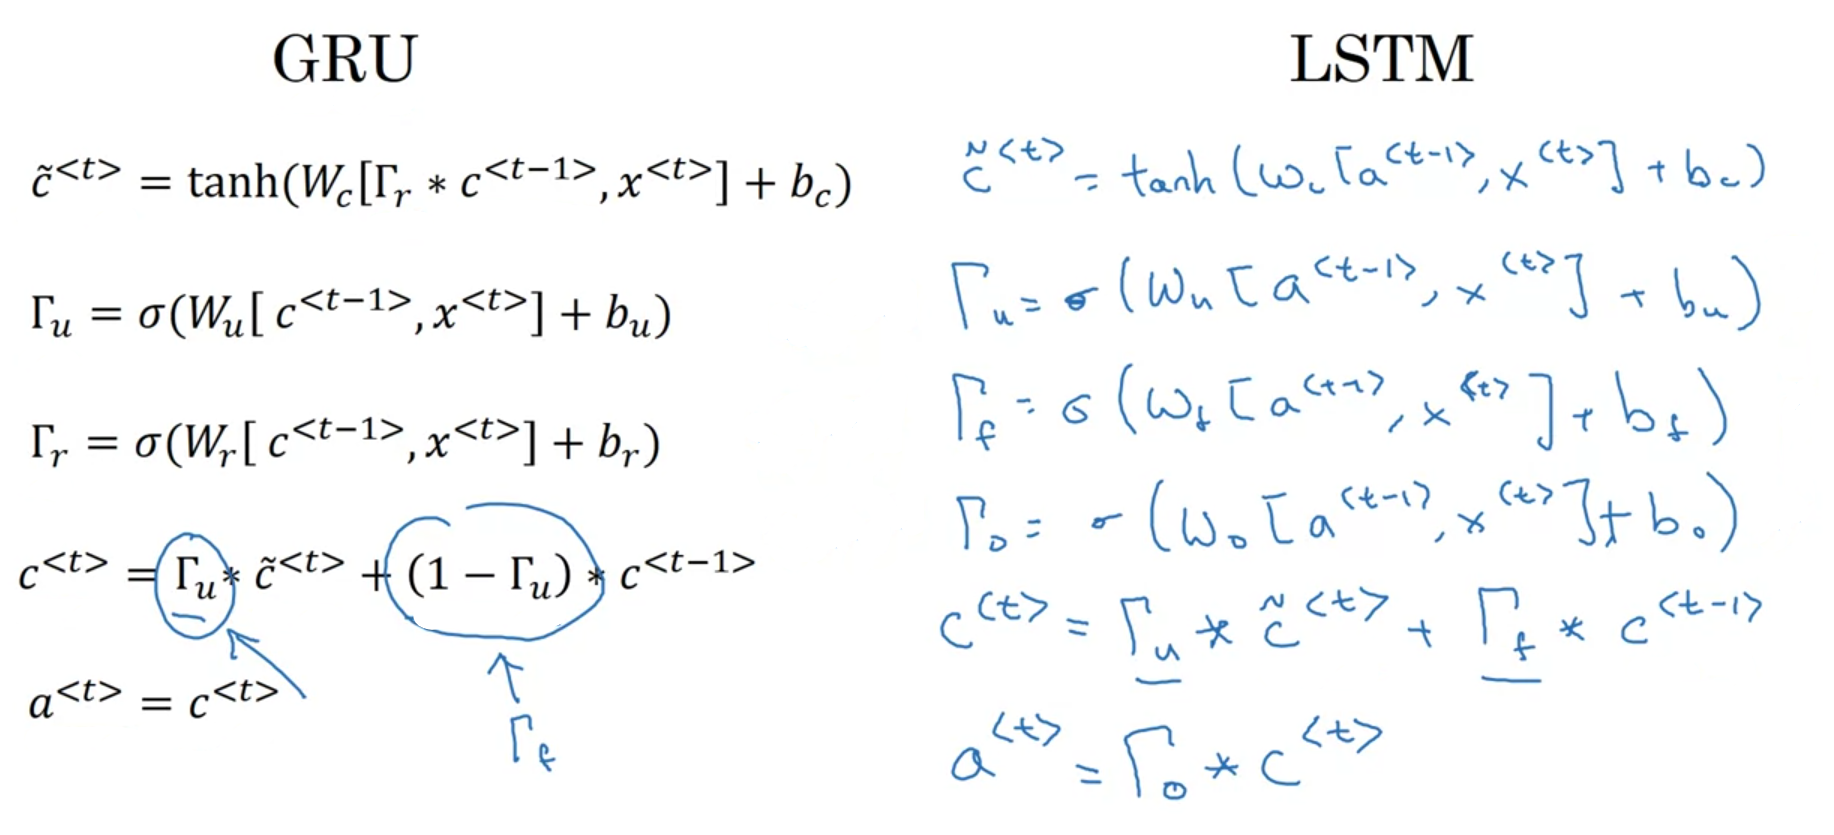 GRU
c̃^<t> = tanh(W_c[Γ_r * c^<t−1>, x^<t>] + b_c)
Γ_u = σ(W_u[ c^<t−1>, x^<t>] + b_u)
Γ_r = σ(W_r[ c^<t−1>, x^<t>] + b_r)
c^<t> = Γ_u * c̃^<t> + (1 − Γ_u) * c^<t−1>
a^<t> = c^<t>
Γ_f
LSTM
c̃^<t> = tanh(W_c[a^<t-1>, x^<t>] + b_c)
Γ_u = σ(W_u[a^<t-1>, x^<t>] + b_u)
Γ_f = σ(W_f[a^<t-1>, x^<t>] + b_f)
Γ_o = σ(W_o[a^<t-1>, x^<t>] + b_o)
c^<t> = Γ_u * c̃^<t> + Γ_f * c^<t-1>
a^<t> = Γ_o * c^<t>